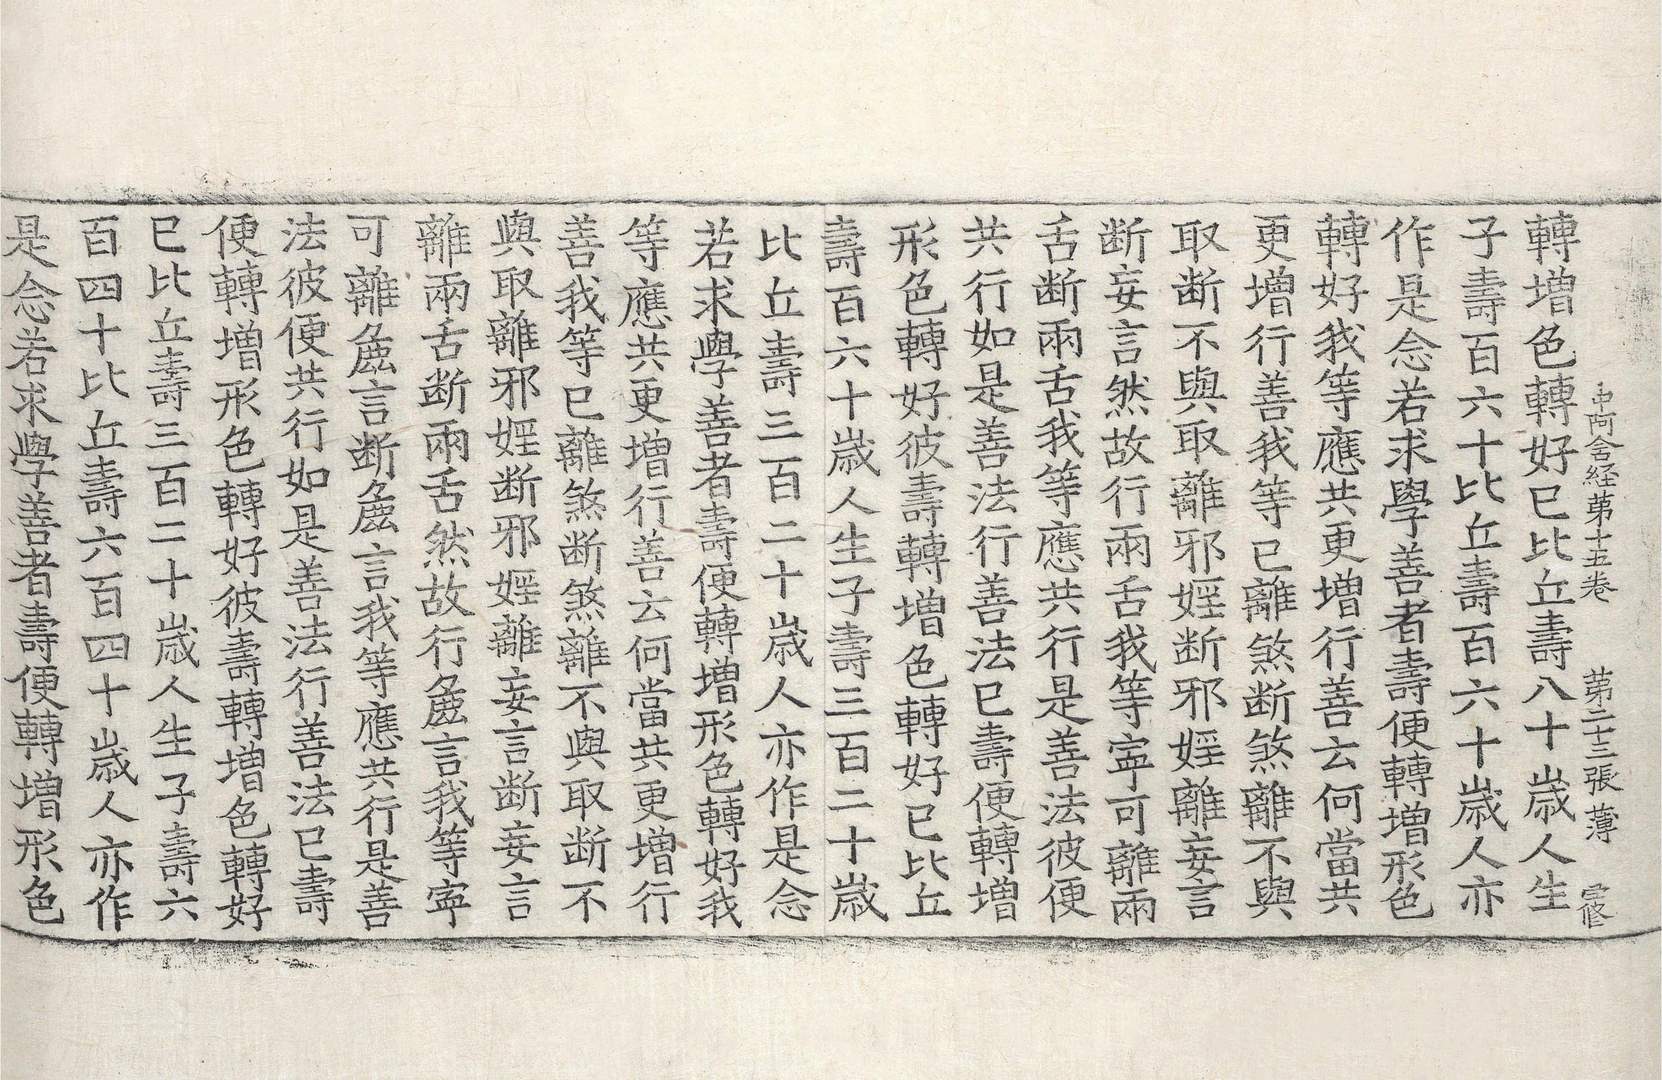 中阿含経苐十五卷 苐二十三張 薄 
轉增色轉好已比丘壽八十歳人生
子壽百六十比丘壽百六十歳人亦
作是念若求學善者壽便轉增形色
轉好我等應共更增行善云何當共
更增行善我等已離煞断煞離不與
取断不與取離邪婬断邪婬離妄言
断妄言然故行兩舌我等寧可離兩
舌断兩舌我等應共行是善法彼便
共行如是善法行善法已壽便轉增
形色轉好彼壽轉增色轉好已比丘
壽百六十歳人生子壽三百二十歳
比丘壽三百二十歳人亦作是念
若求學善者壽便轉增形色轉好我
等應共更增行善云何當共更增行
善我等已離煞断煞離不與取断不
與取離邪婬断邪婬離妄言断妄言
離兩舌断兩舌然故行麁言我等寧
可離麁言断麁言我等應共行是善
法彼便共行如是善法行善法已壽
便轉增形色轉好彼壽轉增色轉好
已比丘壽三百二十歳人生子壽六
百四十比丘壽六百四十歳人亦作
是念若求學善者壽便轉增形色